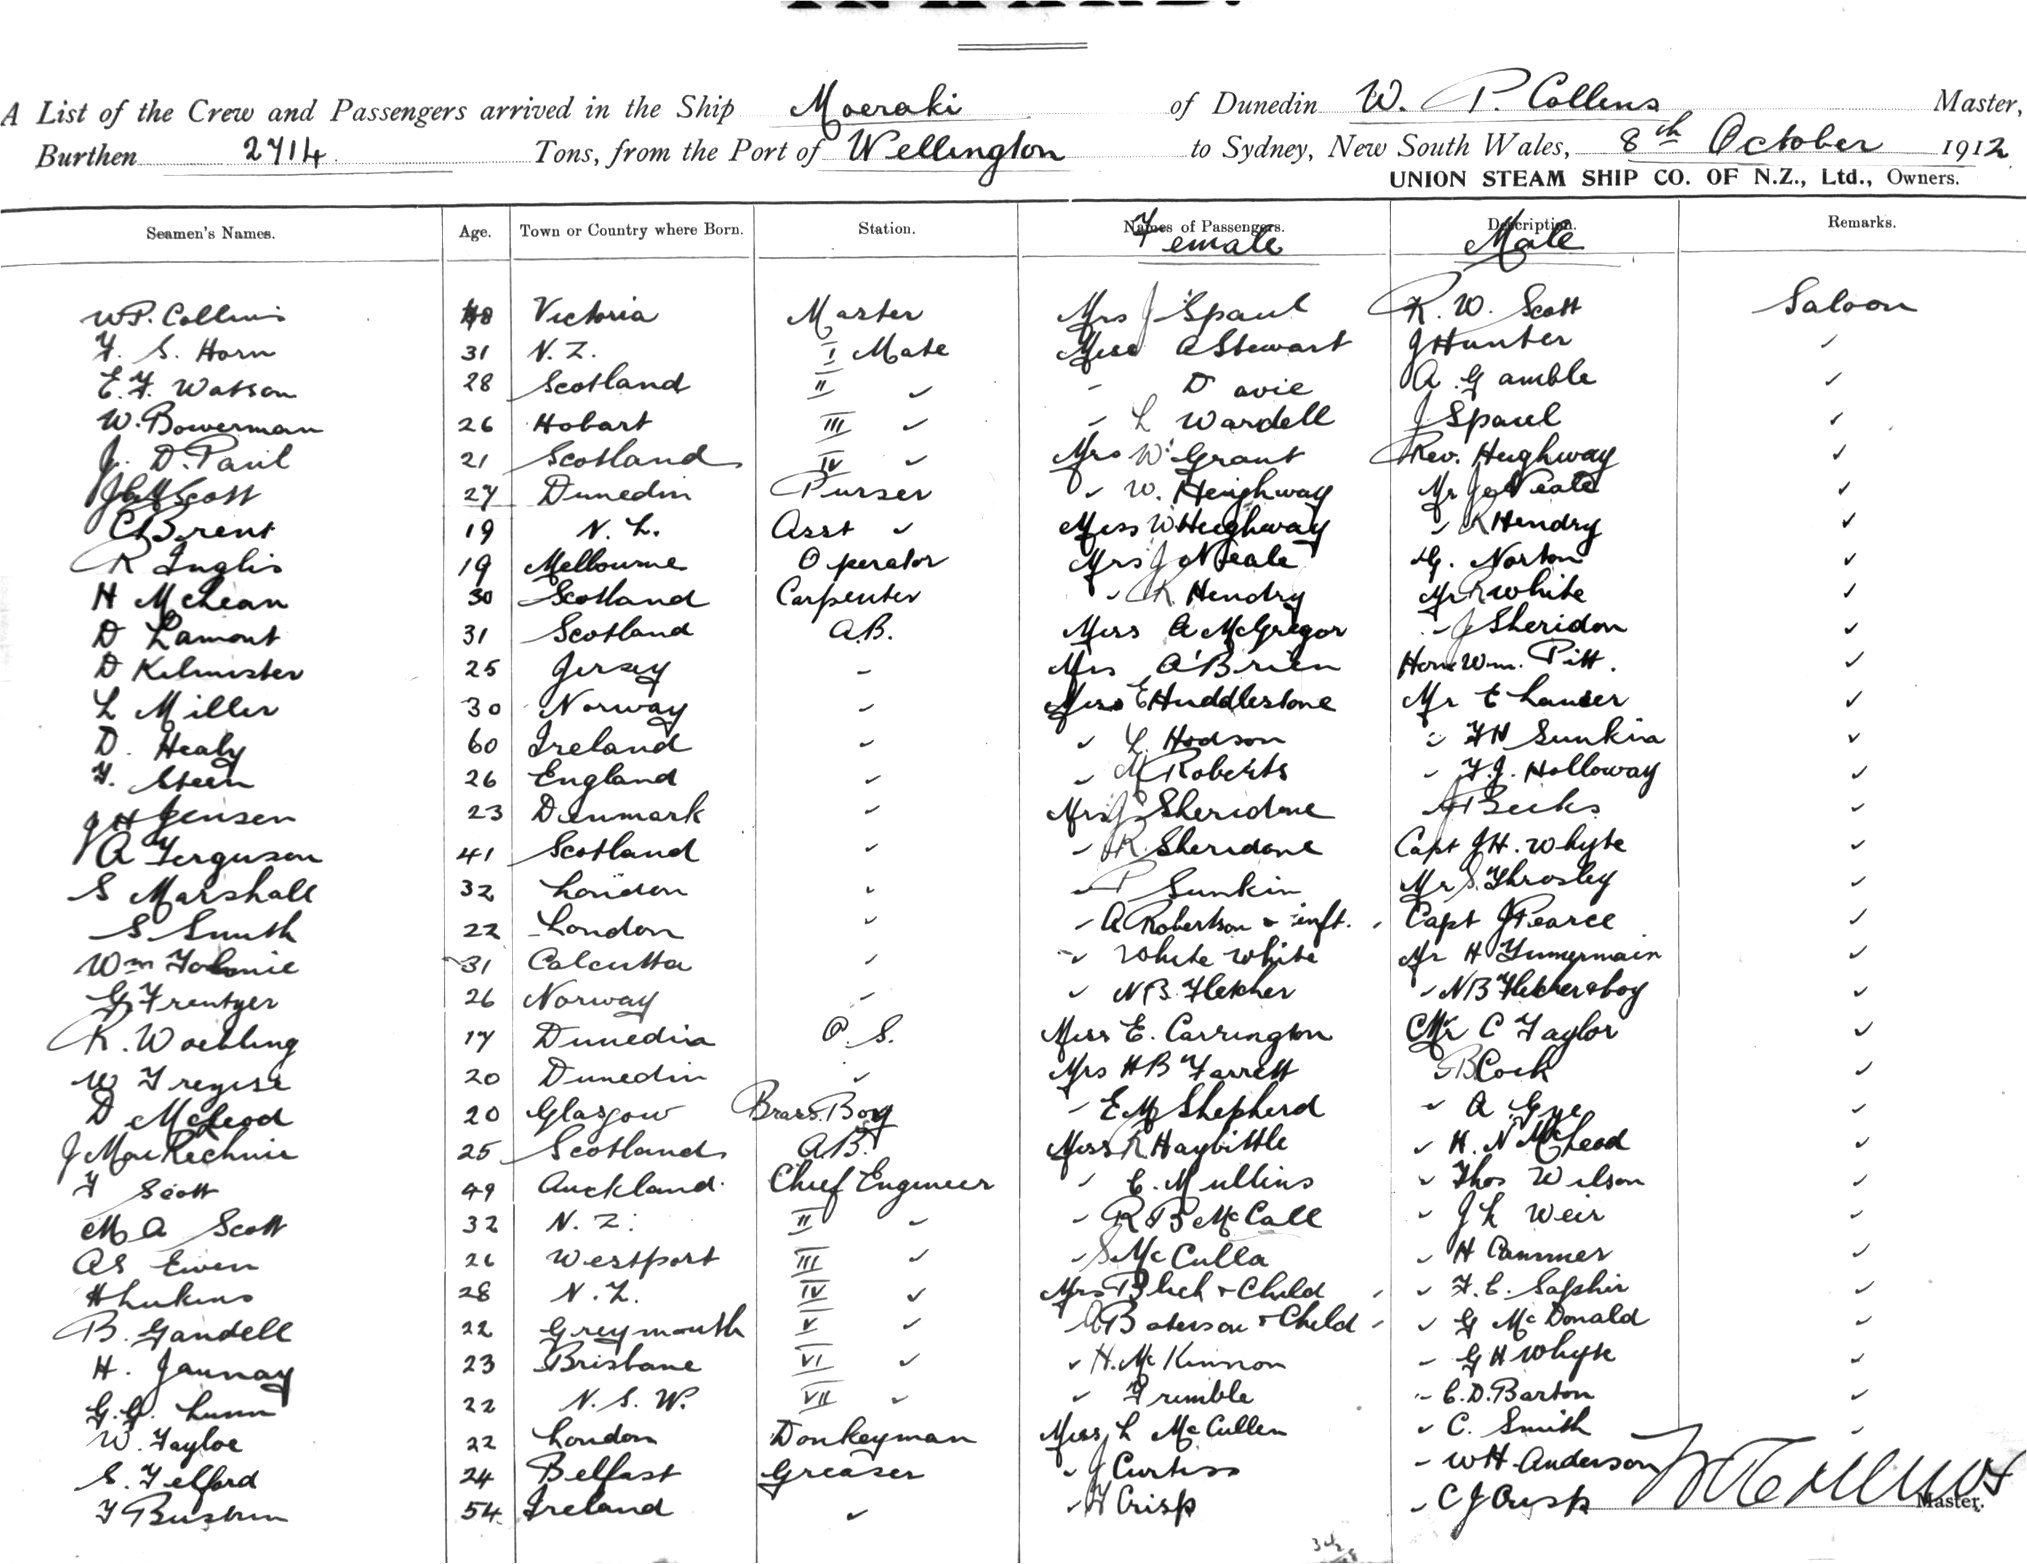 A List of the Crew and Passengers arrived in the Ship Moeraki of Dunedin W. P. Collins Master,
Burthen 2714 Tons, from the Port of Wellington to Sydney, New South Wales, 8th October 1912
UNION STEAM SHIP CO. OF N.Z., Ltd., Owners.
Seamen's Names. Age. Town or Country where Born. Station. Names of Passengers. Description. Remarks.
Female Male
W.P. Collins 48 Victoria Master Mrs J Spaul R. W. Scott Saloon
F. S. Horn 31 N.Z. I Mate Miss A Stewart J Hunter ✓
E. F. Watson 28 Scotland II ✓ - Davie A Gamble ✓
W. Bowerman 26 Hobart III ✓ - L Wardell J Spaul ✓
J. D. Paul 21 Scotland IV ✓ Mrs W Grant Rev. Heighway ✓
Scott 27 Dunedin Purser ✓ W. Heighway Mr J Neale ✓
C Brent 19 N.Z. Asst ✓ Miss W Heighway ✓ R Hendry ✓
R Inglis 19 Melbourne Operator Mrs J Neale G. Norton ✓
H McLean 30 Scotland Carpenter ✓ R Hendry Mr R White ✓
D Lamont 31 Scotland A.B. Miss A McGregor - J Sheridon ✓
D Kilmister 25 Jersey - Mrs O'Brien Hon Wm. Pitt. ✓
L Miller 30 Norway ✓ Miss E Huddlestone Mr E Lauder ✓
D. Healy 60 Ireland ✓ ✓ L Hodson ✓ F H Sunkin ✓
F. Steen 26 England ✓ ✓ M Roberts - F. J. Holloway ✓
J H Jensen 23 Denmark ✓ Mrs J Sheridone Beeks ✓
A Ferguson 41 Scotland ✓ - R Sheridone Capt J H. Whyte ✓
S Marshall 32 London ✓ - P Sunkin Mr S. Throsley ✓
S Smith 22 London ✓ - A Robertson & inft. Capt J Pearce ✓
Wm 31 Calcutta ✓ - White White Mr H ✓
G Frentzer 26 Norway ✓ ✓ N B Fletcher - N B Fletcher & boy ✓
R. Woebling 17 Dunedin O.S. Miss E. Carrington Mr C Taylor ✓
W 20 Dunedin ✓ Mrs H B Farrett B Cock ✓
D McLeod 20 Glasgow Brass Boy - E M Shepherd ✓ A Gye ✓
J MacKechnie 25 Scotland A.B. Miss R Haybittle ✓ H. N McLeod ✓
F Scott 49 Auckland Chief Engineer ✓ E. Mullins ✓ Thos Wilson ✓
M A Scott 32 N.Z. II ✓ - R B McCall ✓ J L Weir ✓
A S Ewen 26 Westport III ✓ - S McCulla ✓ H Cammer ✓
H Lukins 28 N.Z. IV ✓ Mrs Blick & Child ✓ F. C. Saphir ✓
B. Gandell 22 Greymouth V ✓ A Baterson & Child ✓ G McDonald ✓
H. Jaunay 23 Brisbane VI ✓ ✓ H. McKinnon - G H Whyte ✓
G. G. Lunn 22 N.S.W. VII ✓ ✓ Grimble - C. D. Barton ✓
W. Tayloe 22 London Donkeyman Miss L McCullen ✓ C. Smith ✓
S. Telford 24 Belfast Greaser ✓ J Curtiss - W H Anderson
F 54 Ireland ✓ - F Crisp ✓ C J Crisp
W P Collins
Master.